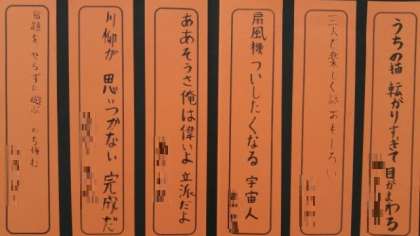 うちの猫 転がりすぎて 目がまわる
三人で 楽しく話 おもしろい
扇風機 ついしたくなる 宇宙人
ああそうさ 俺は偉いよ 立派だよ
川柳が 思いつかない 完成だ
宿題を せずに遊ぶ